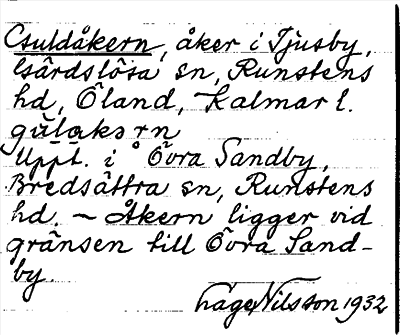 Guldåkern, åker i Tjusby,
Gärdslösa sn, Runstens
hd, Öland, Kalmar l.
gúlakərn
Uppt. i Övra Sandby,
Bredsättra sn, Runstens
hd. ~ Åkern ligger vid
gränsen till Övra Sand-
by.
Hage Nilsson 1932